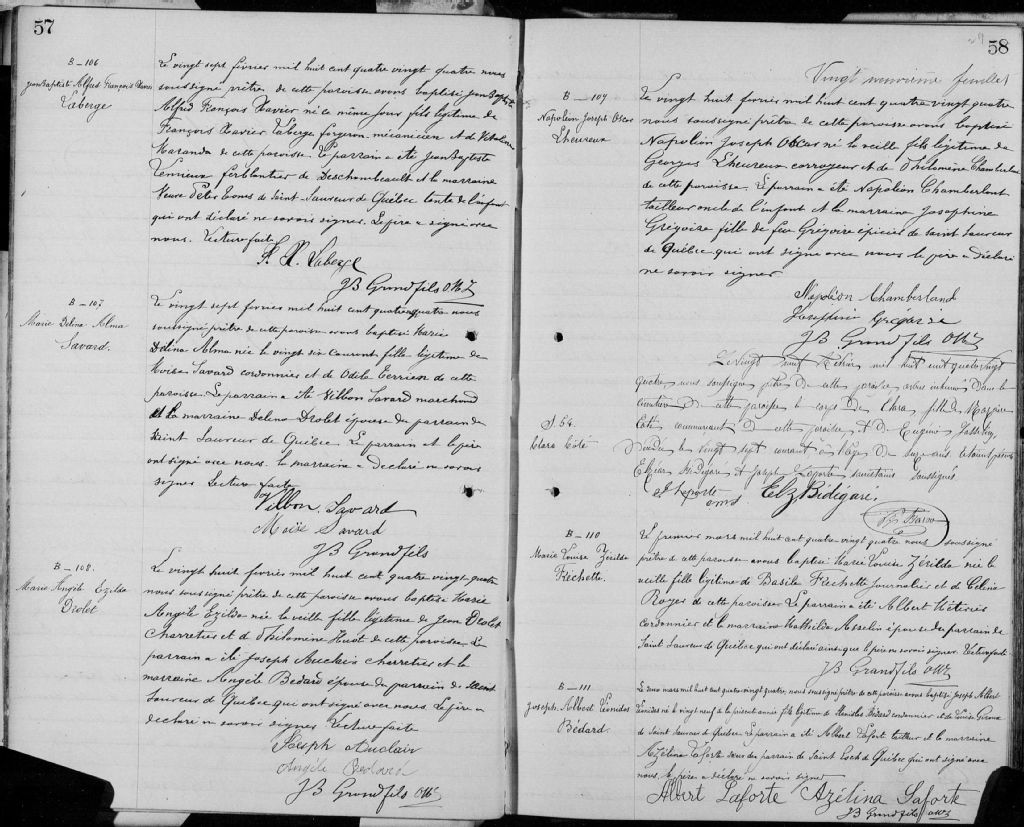 57
B — 106
Jean Baptiste Alfred François Xavier
Laberge
Le vingt sept fevrier mil huit cent quatre vingt quatre nous
soussigné prêtre de cette paroisse avons baptisé Jean Baptiste
Alfred François Xavier né ce même jour fils légitime de
François Xavier Laberge forgeron mécanicien et de
Maranda de cette paroisse. Le parrain a été Jean Baptiste
Lemieux ferblantier de Deschambeault et la marraine
Veuve Peter de Saint Sauveur de Québec tante de l'enfant
qui ont déclaré ne savoir signer. Le père a signé avec
nous. Lecture faite
F. X. Laberge
JB Grandfils OMI
B — 107
Marie Delina Alma
Savard.
Le vingt sept fevrier mil huit cent quatre quatre nous
soussigné prêtre de cette paroisse avons baptisé Marie
Délina Alma née le vingt six courant fille légitime de
Moïse Savard cordonnier et de Odile Terrien de cette
paroisse. Le parrain a été Vilbon Savard marchand
et la marraine Delina Drolet épouse du parrain de
Saint Sauveur de Québec Le parrain et le père
ont signé avec nous. la marraine a declaré ne savoir
signer Lecture faite
Vilbon Savard
Moïse Savard
JB Grandfils
B — 108.
Marie Angèle Ezilda
Drolet
Le vingt huit fevrier mil huit cent quatre vingt quatre
nous soussigné prêtre de cette paroisse avons baptisé Marie
Angèle Ezilda née la veille fille légitime de Jean Drolet
charretier et d Philomène Huot de cette paroisse. Le
parrain a été Joseph Auclair charretier et la
marraine Angèle Bedard épouse du parrain de Saint
Sauveur de Québec qui ont signé avec nous. Le père a
declaré ne savoir signer Lecture faite
Joseph Auclair
Angèle Bedard
JB Grandfils OMI
58
Vingt neuvième feuillet
B — 109
Napoléon Joseph Oscar
L'heureux
Le vingt huit fevrier mil huit cent quatre vingt quatre
nous soussigné prêtre de cette paroisse avons baptisé
Napoléon Joseph Oscar né la veille fils légitime de
Georges L'heureux corroyeur et de Philomène Chamberland
de cette paroisse. Le parrain a été Napoléon Chamberland
tailleur oncle de l'enfant et la marraine Josephine
Grégoire fille de feu Grégoire épicier de Saint Sauveur
de Québec qui ont signé avec nous le père a déclaré
ne savoir signer
Napoléon Chamberland
Josephine Gregoire
JB Grandfils OMI
S. 54.
Clara Côté
Le vingt neuf Février mil huit cent quatre vingt
quatre nous soussigné prêtre de cette paroisse avons inhumé dans le
cimetière de cette paroisse le corps de Clara fille de
Côté commerçant de cette paroisse et de Eugénie
décédée le vingt sept courant à l'âge de onze ans étaient présents
Elzéar Bédigaré et Joseph Laporte sacristains soussignés
J Laporte Elz Bédigaré.
B — 110
Marie Louise Zérilda
Fréchette.
Le premier mars mil huit cent quatre vingt quatre nous soussigné
prêtre de cette paroisse avons baptisé Marie Louise Zérilda née la
veille fille légitime de Basile Fréchette journalier et de Célina
Royer de cette paroisse Le parrain a été Albert
cordonnier et la marraine Mathilda Asselin épouse du parrain de
Saint Sauveur de Québec qui ont déclaré ainsi que le père ne savoir signer. Lecture faite
JB Grandfils OMI
B — 111
Joseph Albert Léonidas
Bédard.
Le deux mars mil huit cent quatre vingt quatre, nous soussigné prêtre de cette paroisse avons baptisé Joseph Albert
Léonidas né le vingt neuf de la présente année fils légitime de Stanislas Bédard cordonnier et de Louise Giroux
de Saint Sauveur de Québec Le parrain a été Albert Laforte tailleur et la marraine
Azélina Laforte soeur du parrain de Saint Roch de Québec qui ont signé avec
nous, le père a déclaré ne savoir signer
Albert Laforte Azélina Laforte
JB Grandfils OMI